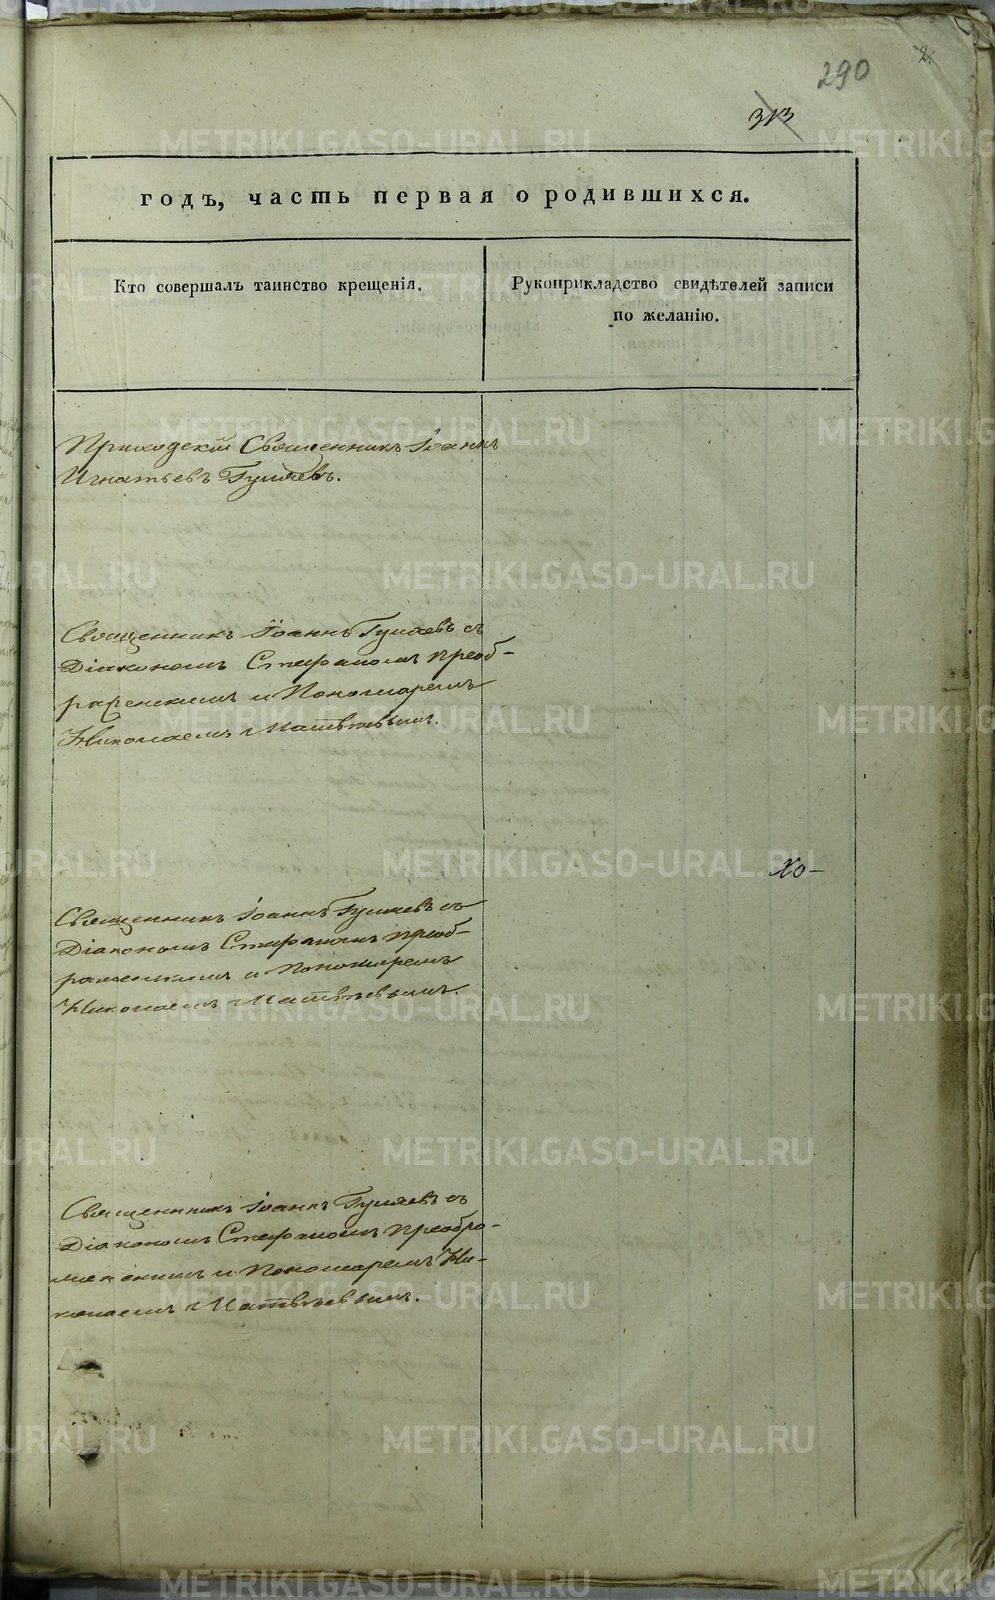 2.
290
313
годъ, часть первая о родившихся.
Кто совершалъ таинство крещенія.
Рукоприкладство свидѣтелей записи
по желанію.
Приходскій Священникъ Іоаннъ
Игнатьевъ Гуляевъ.
Священникъ Іоаннъ Гуляевъ съ
Діакономъ Стефаномъ Преоб-
раженскимъ и Пономаремъ
Николаемъ Матвѣевымъ.
Хо-
Священникъ Іоаннъ Гуляевъ съ
Діакономъ Стефаномъ Преоб-
раженскимъ и Пономаремъ
Николаемъ Матвѣевымъ.
Священникъ Іоаннъ Гуляевъ съ
Діакономъ Стефаномъ Преобра-
женскимъ и Пономаремъ Ни-
колаемъ Матвѣевымъ.
METRIKI.GASO-URAL.RU